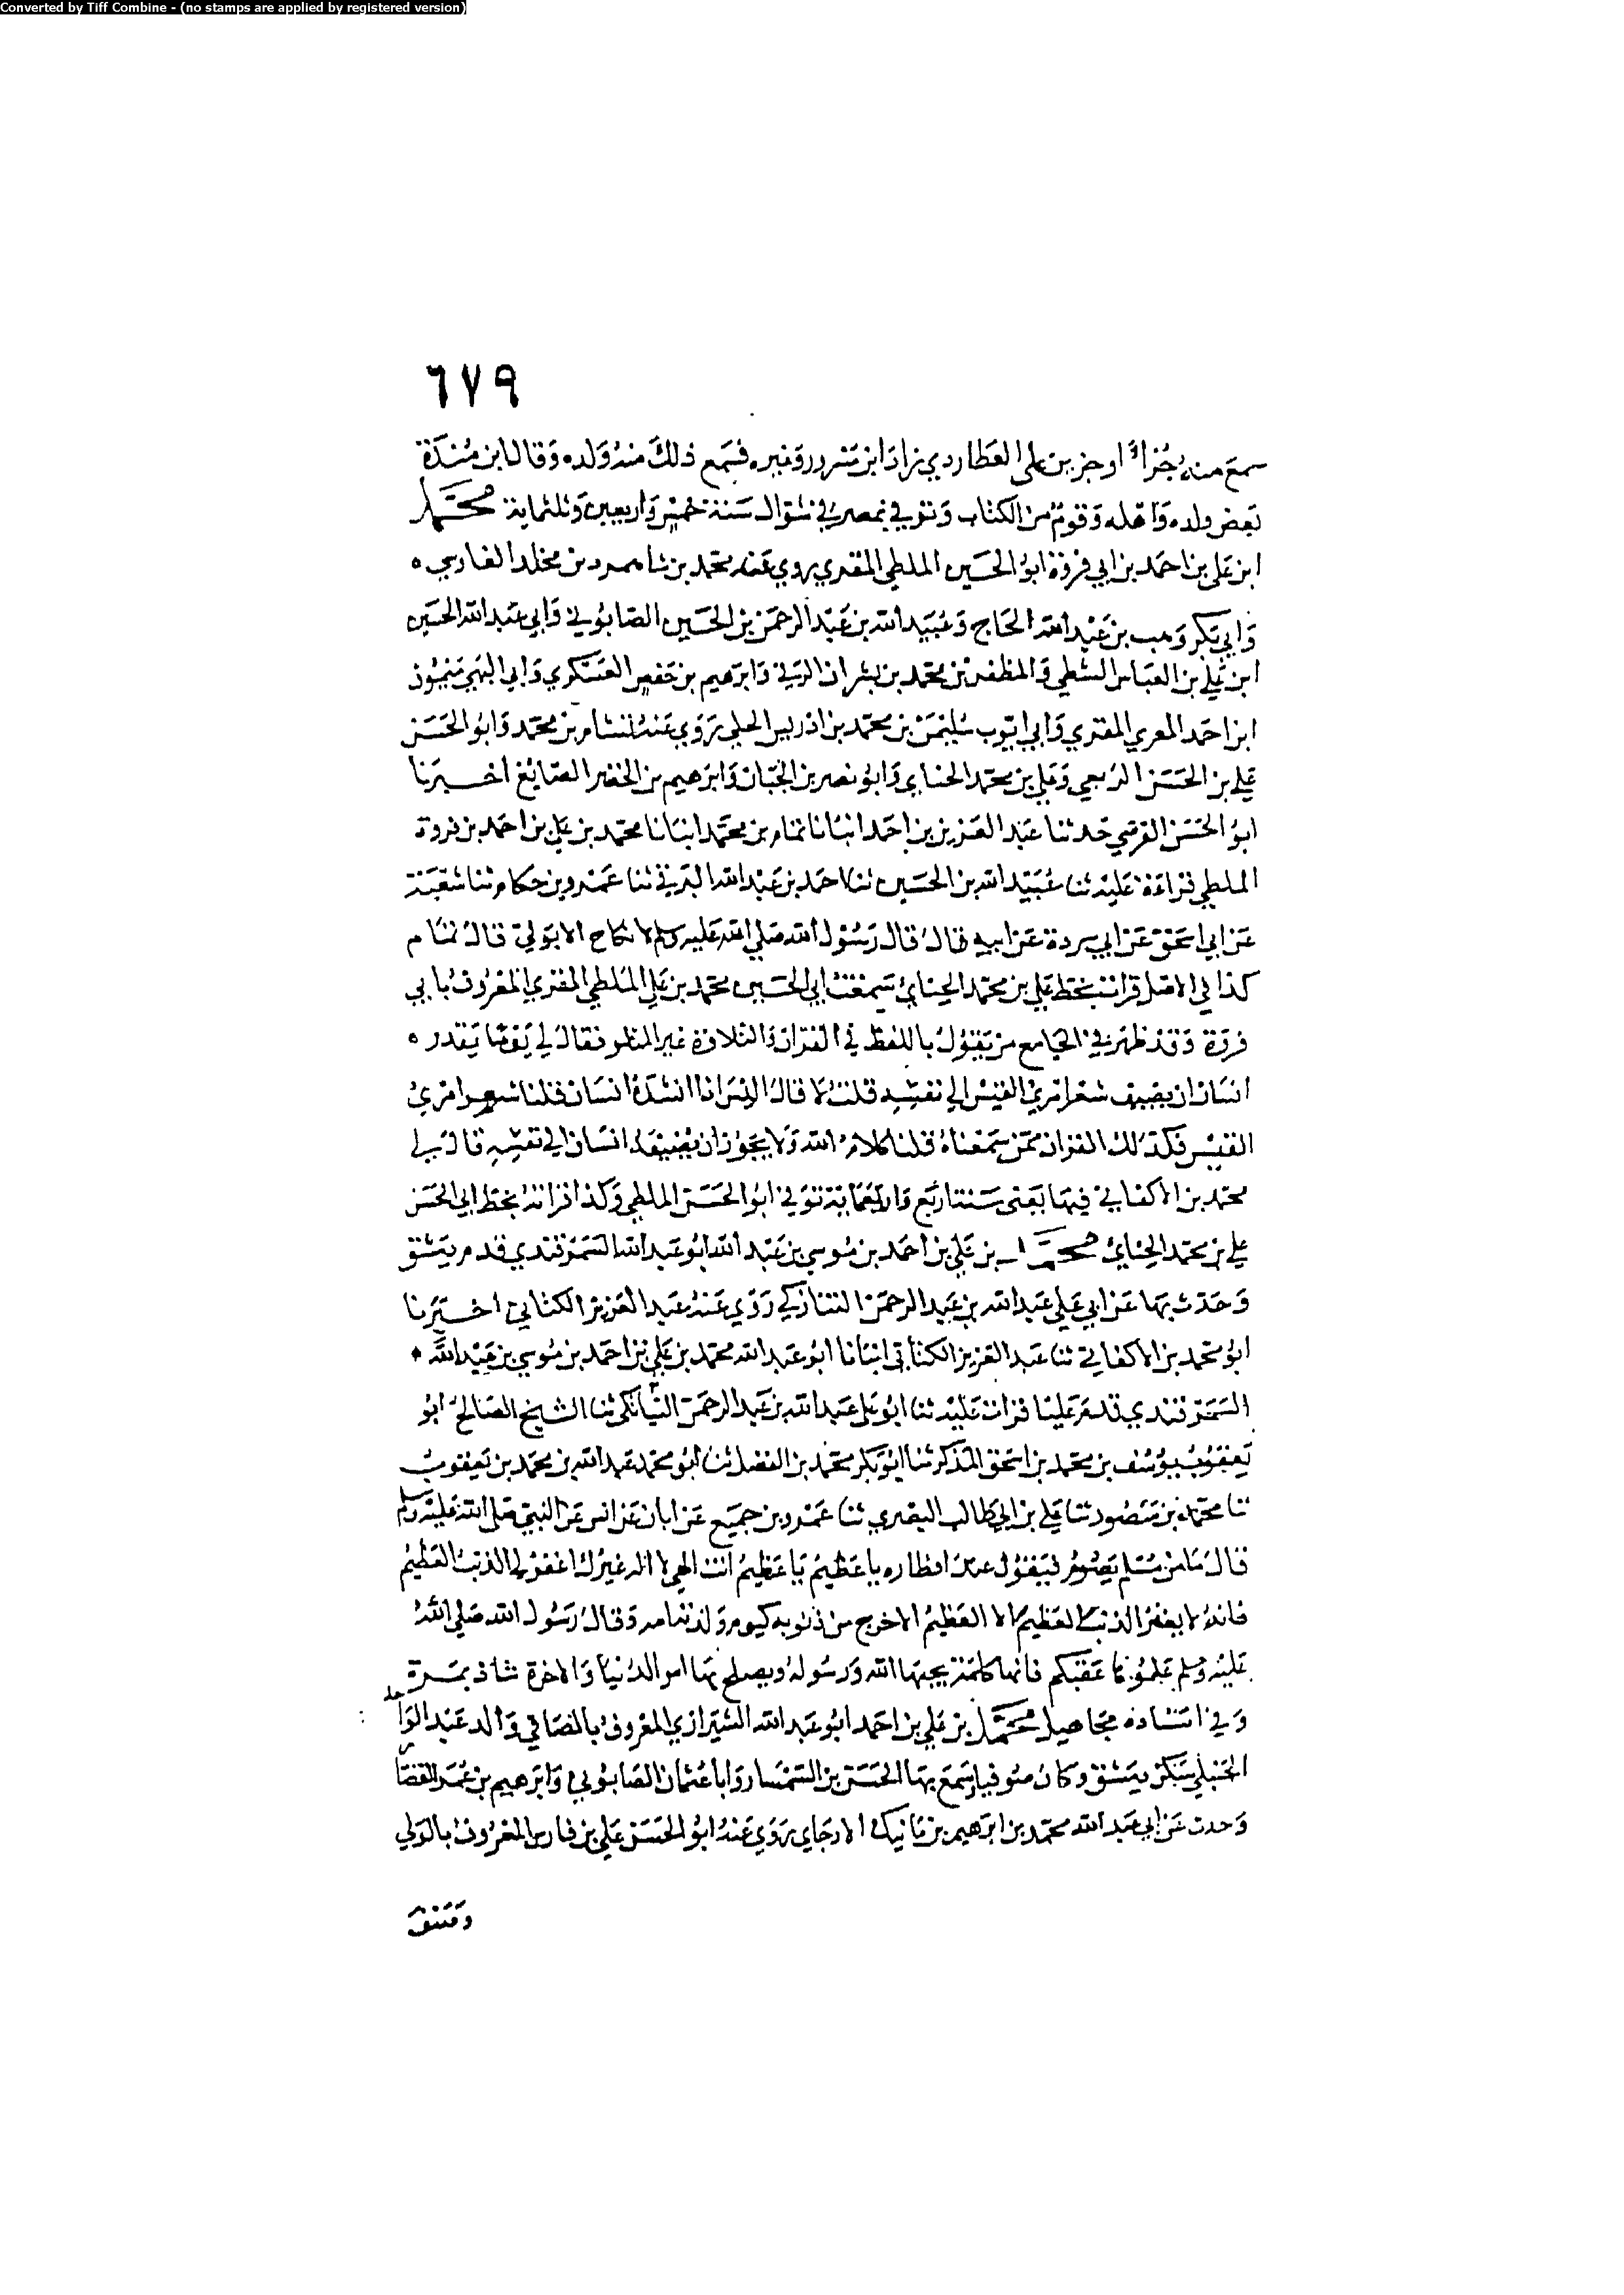 Converted by Tiff Combine - (no stamps are applied by registered version)
٦٧٩
سمع منه جُزأً او جزين على العطاردي زاد ابن مسرور وغيره فسمع ذلك منه ولده وقال ابن منده
بعض ولده واهله وقومٌ من الكتاب وتوفي بمصر في شوال سنة خمس واربعين وثلثماية محمد
ابن على بن احمد بن ابي فروة ابو الحسين الملطي المقري روي عنه محمد بن شا مرد بن مخلد الفارسي ه
وابي بكر وهب بن عبد الله الحاج وعبيد الله بن عبد الرحمن بن الحسين الصابوني وابي عبد الله الحسين
ابن علي بن العباس الشطي والمظفر بن محمد بن بشران الرقي وابرهيم بن حفص العسكري وابي البهي ميمون
ابن احمد المعري المقري وابي ايوب سليمن بن محمد بن ادريس الحلبي روي عنه تمام بن محمد وابو الحسن
علي بن الحسن الربعي وعلي بن محمد الحناي وابو نصر بن الجبان وابرهيم بن الخضر الصايغ اخبرنا
ابو الحسن الفرضي حدثنا عبد العزيز بن احمد انبانا تمام بن محمد انبانا محمد بن علي بن احمد بن فروة
الملطي قراءة عليه ثنا عبيد الله بن الحسين ثنا احمد بن عبد الله ثنا عمرو بن حكام ثنا شعبة
عن ابي اسحق عن ابي بردة عن ابيه قال قال رسول الله صلى الله عليه وسلم لا نكاح الا بولي قال تمام
كذا في الاصل قرات بخط علي بن محمد الحناي سمعت ابي الحسين محمد بن علي الملطي المقري المعروف بابي
فروة وقد ظهر في الجامع من يقول باللفظ في القران والتلاوة غير المتلو فقال لي يوما يقدر ه
انسان ان يضيف شعر امرئ القيس الي نفسه قلت لا قال اليس اذا انشده انسان قلنا شعر امرئ
القيس فكذلك القران ممن سمعناه قلنا كلام الله ولا يجوز ان يضيفه انسان الي نفسه قال لي
محمد بن الاكفاني فيها يعنى سنة اربع واربعماية توفي ابو الحسن الملطي وكذا قراته بخط ابي الحسن
علي بن محمد الحناي محمد بن علي بن احمد بن موسي بن عبد الله ابو عبد الله السمرقندي قدم دمشق
وحدث بها عن ابي علي عبد الله بن عبد الرحمن روي عنه عبد العزيز الكتاني اخبرنا
ابو محمد بن الاكفاني ثنا عبد العزيز الكتاني انبانا ابو عبد الله محمد بن علي بن احمد بن موسي بن عبد الله
السمرقندي قدم علينا قرات عليه ثنا ابو علي عبد الله بن عبد الرحمن ثنا الشيخ الصالح ابو
يعقوب يوسف بن محمد بن اسحق المذكر ثنا ابو بكر محمد بن الفضل ثنا ابو محمد عبد الله بن محمد بن يعقوب
ثنا محمد بن منصور ثنا علي بن ابي طالب البصري ثنا عمرو بن جميع عن ابان عن انس عن النبي صلى الله عليه وسلم
قال ما من مسلم يصوم فيقول عند افطاره يا عظيم يا عظيم انت الهي لا اله غيرك اغفر لي الذنب العظيم
فانه لا يغفر الذنب العظيم الا العظيم الا خرج من ذنوبه كيوم ولدته امه وقال رسول الله صلى الله
عليه وسلم علموها عقبكم فانها كلمة يحبها الله ورسوله ويصلح بها امر الدنيا والاخرة شاذ بمرة
وفي اسناده مجاهيل محمد بن علي بن احمد ابو عبد الله الشيرازي المعروف والد عبد الواحد
الحنبلي سكن دمشق وكان صوفيا سمع بها الحسن بن السمسار وابا عثمان الصابوني وابرهيم بن عمر القصار
وحدث عن ابي عبد الله محمد بن ابرهيم بن مانيك الارجاي روي عنه ابو الحسن علي بن فارس المعروف